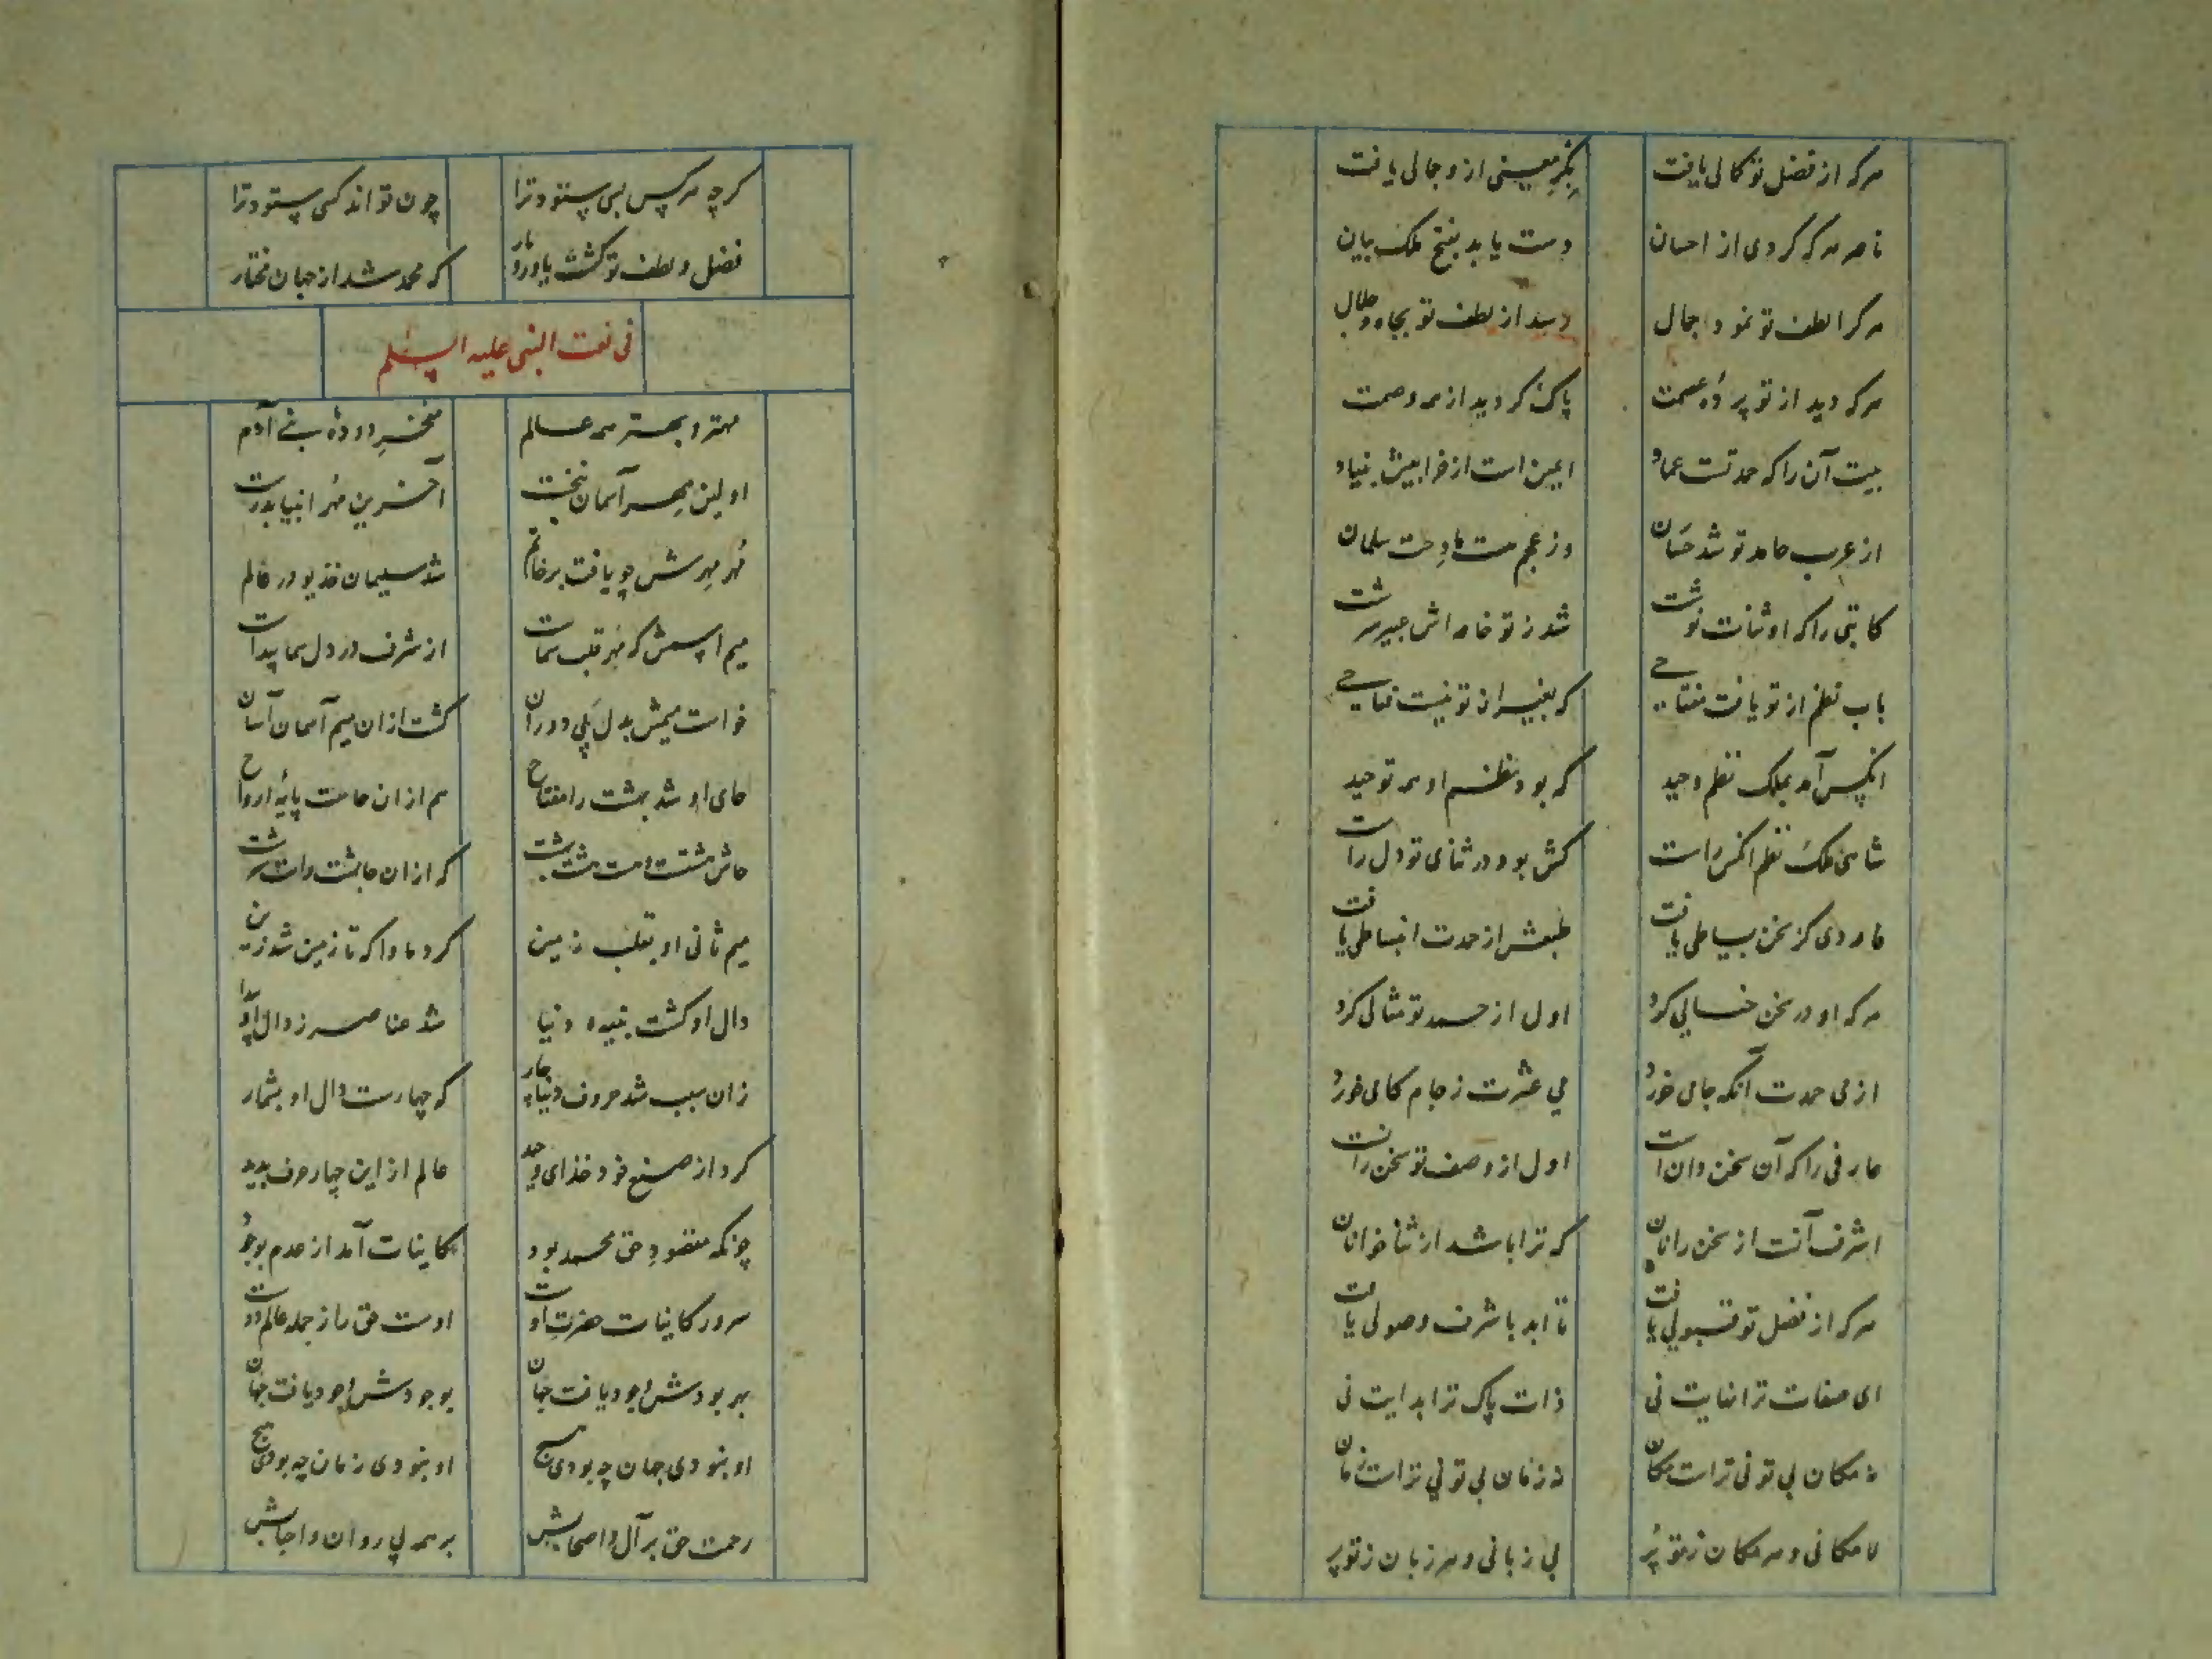 هرکه از فضل تو کمالی یافت بکر معنیی ازو جمالی یافت
ناصر هرکه کردی از احسان دست یابد بفتح ملک بیان
هرکرا لطف تو نمود جمال رسد از لطف تو بجاه و جلال
هرکه دید از تو پردهٔ عصمت پاک کردید از همه وصمت
بیت آن را که حمد تست عماد ایمن است از خرابیش بنیاد
از عرب حامد تو شد حسان وز عجم هست مادحت سلمان
کاتبی را که او ثنات نوشت شد ز تو خامه اش عبیر سرشت
باب نظم از تو یافت مفتاحی که بغیر از تو نیست فتاحی
انکس آمد بملک نظم وحید که بود نظم او همه توحید
شاهی ملک نظم انکس راست کش بود در ثنای تو دل راست
مادحی کز سخن بساطی یافت طبعش از حمدت انبساطی یافت
هرکه او در سخن خیالی کرد اول از حمد تو مثالی کرد
از می حمدت آنکه جامی خورد می عشرت ز جام کامی خورد
عارفی را که آن سخن دان است اول از وصف تو سخن رانست
اشرف آنست از سخن رانان که ترا باشد از ثنا خوانان
هرکه از فضل تو قبولی یافت تا ابد با شرف وصولی یافت
ای صفات ترا نهایت نی ذات پاک ترا بدایت نی
نه مکان بی تو نی تراست مکان نه زمان بی تو نی تراست زمان
لامکانی و هر مکان ز تو پُر بی زبانی و هر زبان ز تو پر
کرچه هرکس بسی ستود ترا چون تواند کسی ستود ترا
فضل و لطف تو کشت یاور و یار که محمد شد از جهان مختار
فی نعت النبی علیه السلم
مهتر و بهتر همه عالم مفخرِ دودهٔ بنی آدم
اولین مهر آسمان نخست آخرین مُهر انبیا بدرست
مُهر مِهرش چو یافت بر خاتم شد سلیمان خدیو در عالم
میم اسمش که مُهر قلب سماست از شرف در دل سما پیداست
خواست میمش بدل پی دوران کشت ازان میم آسمان آسان
حای او شد بهشت را مفتاح هم ازان حاست پایهٔ ارواح
حاش هشتست و هست هشت بهشت که ازان حا بهشت راست سرشت
میم ثانی او بقلب زمین کرد ماوا که تا زمین شد زین
دال او کشت بنیه دنیا شد عناصر ز دال او پیدا
زان سبب شد حروف دنیا چار که چهارست دال او بشمار
کرد از صنع خود خدای وحید عالم از این چهار حرف پدید
چونکه مقصودِ حق محمد بود کاینات آمد از عدم بوجود
سرور کاینات حضرتِ اوست اوست حق را ز جمله عالم دوست
بهر بودش وجود یافت جهان بوجودش وجود یافت جهان
او نبودی جهان چه بودی هیچ او نبودی زمان چه بودی هیچ
رحمت حق بر آل و اصحابش بر همه پی روان و احبابش